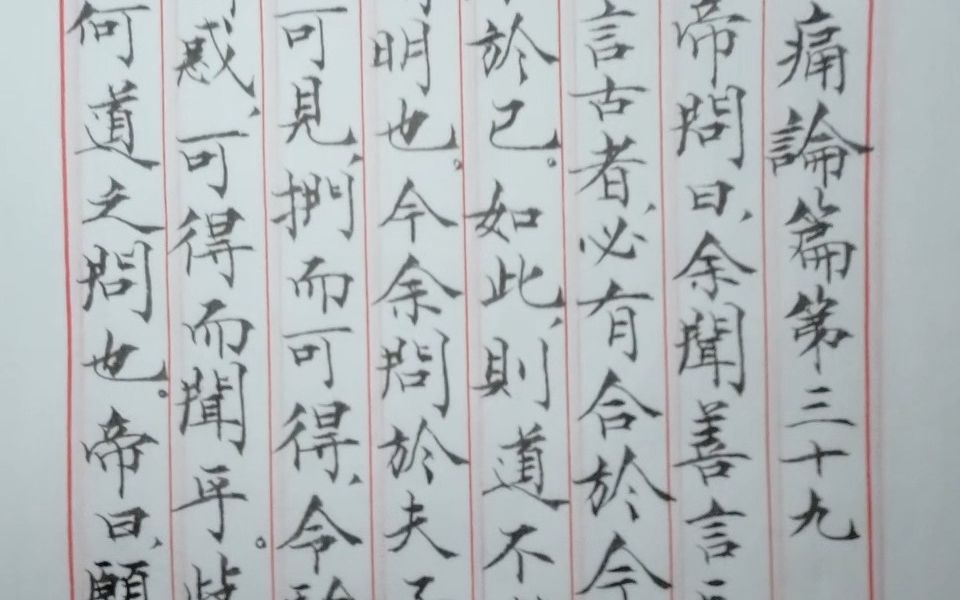 痛論篇第三十九
帝問曰，余聞善言
言古者，必有合於今
於已。如此，則道不
明也。今余問於夫子
可見，捫而可得，令
惑，可得而聞乎。
何道之問也。帝曰，願